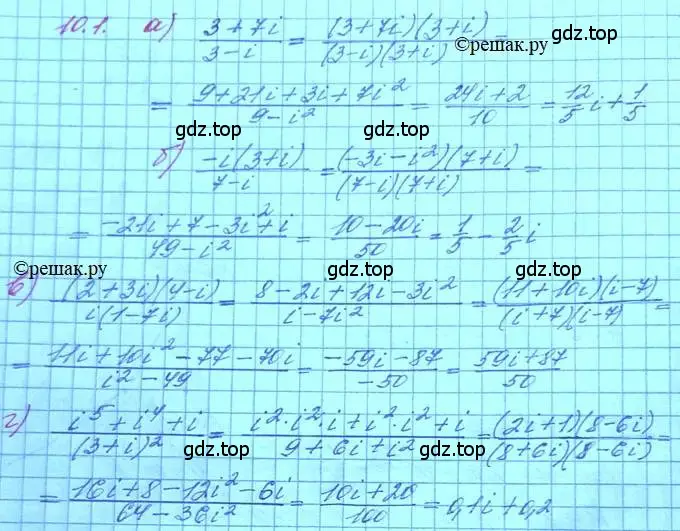 10.1. а) (3+7i)/(3-i) = ((3+7i)(3+i))/((3-i)(3+i)) =
©решак.ру
= (9+21i+3i+7i²)/(9-i²) = (24i+2)/10 = 12/5 i + 1/5
gdz.top gdz.top
б) (-i(3+i))/(7-i) = ((-3i-i²)(7+i))/((7-i)(7+i)) =
gdz.top
= (-21i+7-3i²+i)/(49-i²) = (10-20i)/50 = 1/5 - 2/5 i
©решак.ру gdz.top
в) ((2+3i)(4-i))/(i(1-7i)) = (8-2i+12i-3i²)/(i-7i²) = ((11+10i)(i-7))/((i+7)(i-7)) =
gdz.top gdz.top
= (11i+10i²-77-70i)/(i²-49) = (-59i-87)/(-50) = (59i+87)/50
gdz.top
г) (i⁵+i⁴+i)/(3+i)² = (i²·i²·i+i²·i²+i)/(9+6i+i²) = ((2i+1)(8-6i))/((8+6i)(8-6i)) =
gdz.top gdz.top
= (16i+8-12i²-6i)/(64-36i²) = (10i+20)/100 = 0,1i+0,2
gdz.top